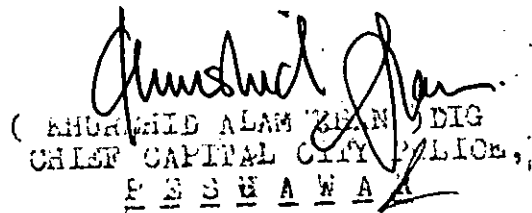 Khurshid Khan.
( KHURSHID ALAM KHAN ) DIG
CHIEF CAPITAL CITY POLICE,
P E S H A W A R